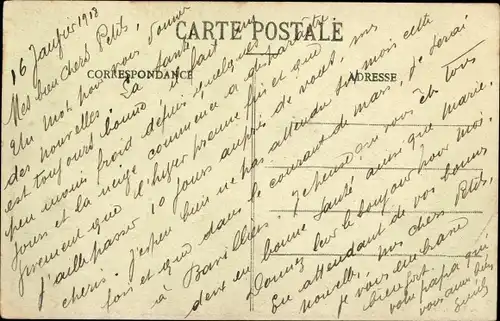 CARTE POSTALE
CORRESPONDANCE
ADRESSE
16 Janvier 1918
Mes bien chers Petits,
Un mot pour vous donner
des nouvelles. La santé
est toujours bonne, il fait un
peu moins froid depuis quelques
jours et la neige commence à disparaître.
Vivement que l'hiver prenne fin et que
j'aille passer 10 jours auprès de vous, mes
chéris. J'espère bien ne pas attendre six mois cette
fois et que dans le courant de mars, je serai
à Barvilliers. Heureux, si vous êtes tous
deux en bonne santé ainsi que Marie.
Donnez leur le bonjour pour moi.
En attendant de vos bonnes
nouvelles, mes chers Petits,
je vous embrasse
bien fort.
votre papa qui
vous aime bien